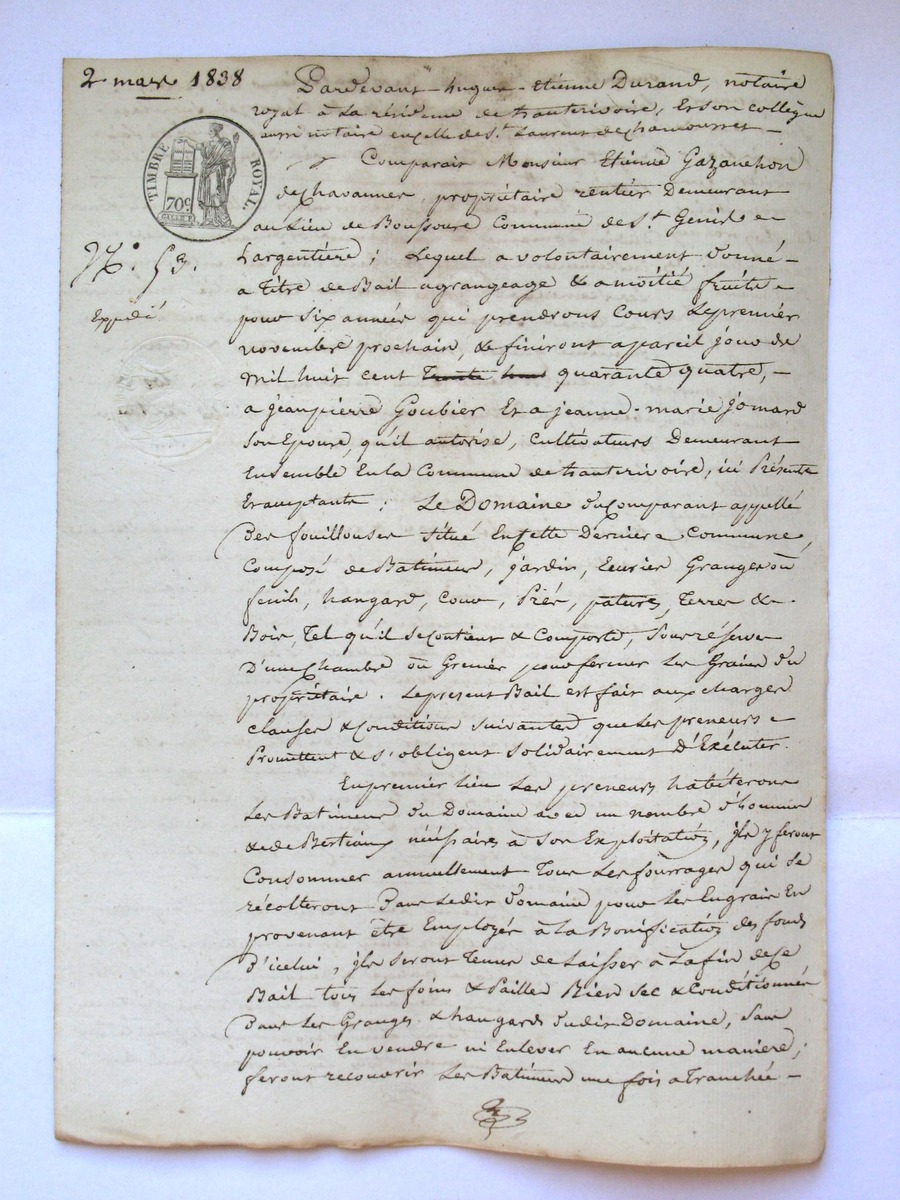 2 mars 1838
Pardevant hugues-Etienne Durand, notaire
royal à La résidence de hauterivoire, Et son collègue
aussi notaire en celle de St. Laurent de chamousset –
TIMBRE ROYAL.
70c
Comparait Monsieur Etienne Gazanchon
de chavannes, propriétaire rentier Demeurant
au Lieu de Boussoure Commune de St. Genis
N°. 53.
L'argentière ; Lequel a volontairement donné –
a Titre de Bail a grangeage & a moitié fruits
Expédié
pour Six années qui prendrons Cours Le premier
novembre prochain, & finiront a pareil jour de
mil huit cent trente huit quarante quatre, –
a jeanpierre Goubier Et a jeanne-marie jomard
Son Epouse, qu'il autorise, Cultivateurs Demeurant
Ensemble En la Commune de hauterivoire, ici Présents
Et acceptants ; Le Domaine du Comparant appellé
Des fouillouses Situé En cette Dernière Commune,
Composé de Batimens, jardin, Ecuries Granges ou
fenils, hangard, Cour, Prés, patures, Terres &
Bois, Tel qu'il se Contient & Comporte, Sous réserve
D'une Chambre ou Grenier pour fermer Les Grains du
propriétaire. Le present Bail est fait aux charges
clauses & Conditions Suivantes que Les preneurs
Promettent & s'obligent Solidairement D'Exécuter.
En premier lieu Les preneurs habiterons
Les Batimens du Domaine avec un nombre d'hommes
& de Bestiaux nécéssaires à Son Exploitation, jls y feront
Consommer annuellement Tous Les fourrages qui Se
récolterons Dans Ledit Domaine pour Les Engrais En
provenant être Employés à La Bonification des fonds
d'icelui, jls Seront Tenus de Laisser à La fin de ce
Bail tous Les foins & Pailles Bien Sec & Conditionnés
Dans Les Granges & hangards dudit Domaine, Sans
pouvoir En vendre ni Enlever En aucune manière ;
feront recouvrir Les Batimens une fois a Tranchée –